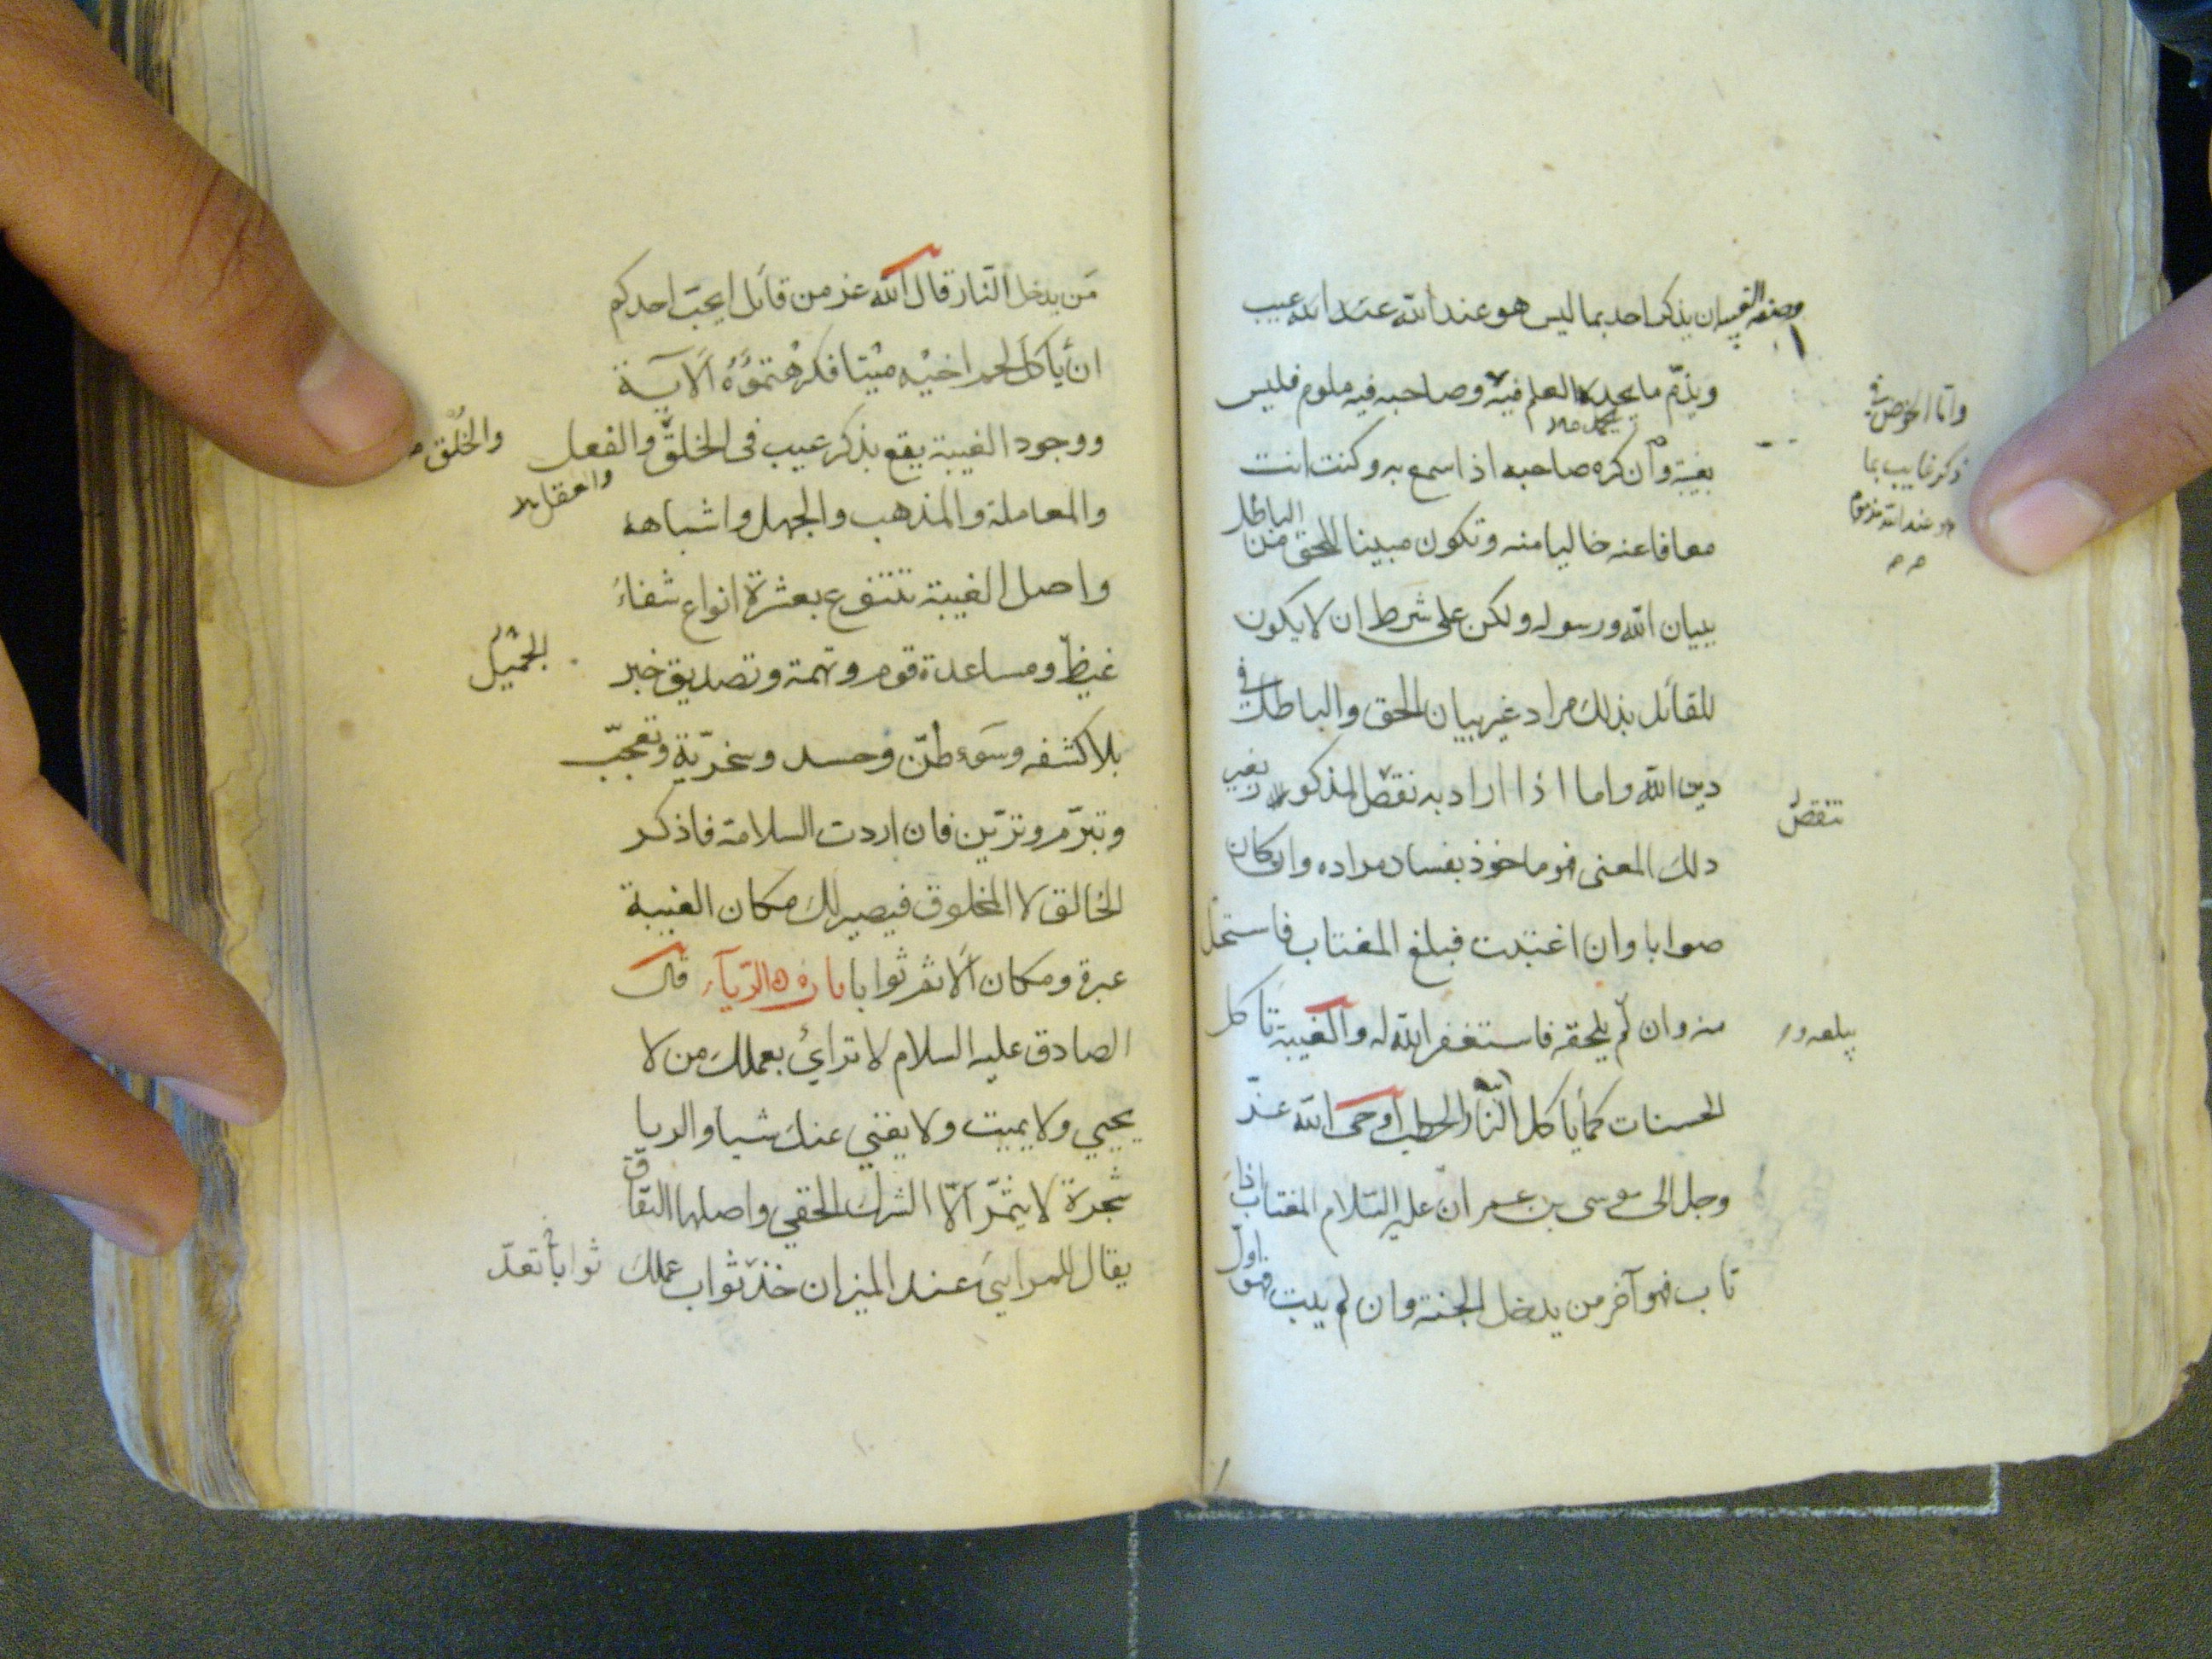 وصفة الغيبة ان يذكر احد بما ليس هو عند الله عيب
ويذمّ ما يحمده العلم فيه وصاحبه فيه ملوم فليس
بغيبة وان كره صاحبه اذا سمع به وكنت انت
معافا عنه خاليا منه وتكون مبينا للحق من الباطل
ببيان الله ورسوله ولكن على شرط ان لا يكون
للقائل بذلك مراد غير بيان الحق والباطل في
دين الله واما اذا اراد به نقص المذكور بغير
ذلك المعنى فهو ماخوذ بفساد مراده وان كان
صوابا وان اغتبت فبلغ المغتاب فاستحل
منه وان لم يلحقه فاستغفر الله له والغيبة تاكل
الحسنات كما ياكل النار الحطب اوحى الله عز
وجل الى موسى بن عمران عليه السلام المغتاب اذا
تاب فهو آخر من يدخل الجنة وان لم يتب فهو اول
واما الخوض في
ذكر غايب بما
هو عند الله مذموم
تنقص
يبلغه و
من يدخل النار قال الله عز من قائل ايحب احدكم
ان ياكل لحم اخيه ميتا فكرهتموه الآية
ووجود الغيبة يقع بذكر عيب في الخلق والفعل
والخلق
والعقل
والمعاملة والمذهب والجهل واشباهه
واصل الغيبة تتنوع بعشرة انواع شفاء
غيظ ومساعدة قوم وتهمة وتصديق خبر
بلا كشفه وسوء ظن وحسد وسخرية وتعجب
وتبرم وتزين فان اردت السلامة فاذكر
الخالق لا المخلوق فيصير لك مكان الغيبة
عبرة ومكان الاثم ثوابا باب الرياء قال
الصادق عليه السلام لا تراي بعملك من لا
يحيي ولا يميت ولا يغني عنك شيا والريا
شجرة لا يثمر الا الشرك الخفي واصلها النفاق
يقال للمرائي عند الميزان خذ ثواب عملك
ثوابا تعد